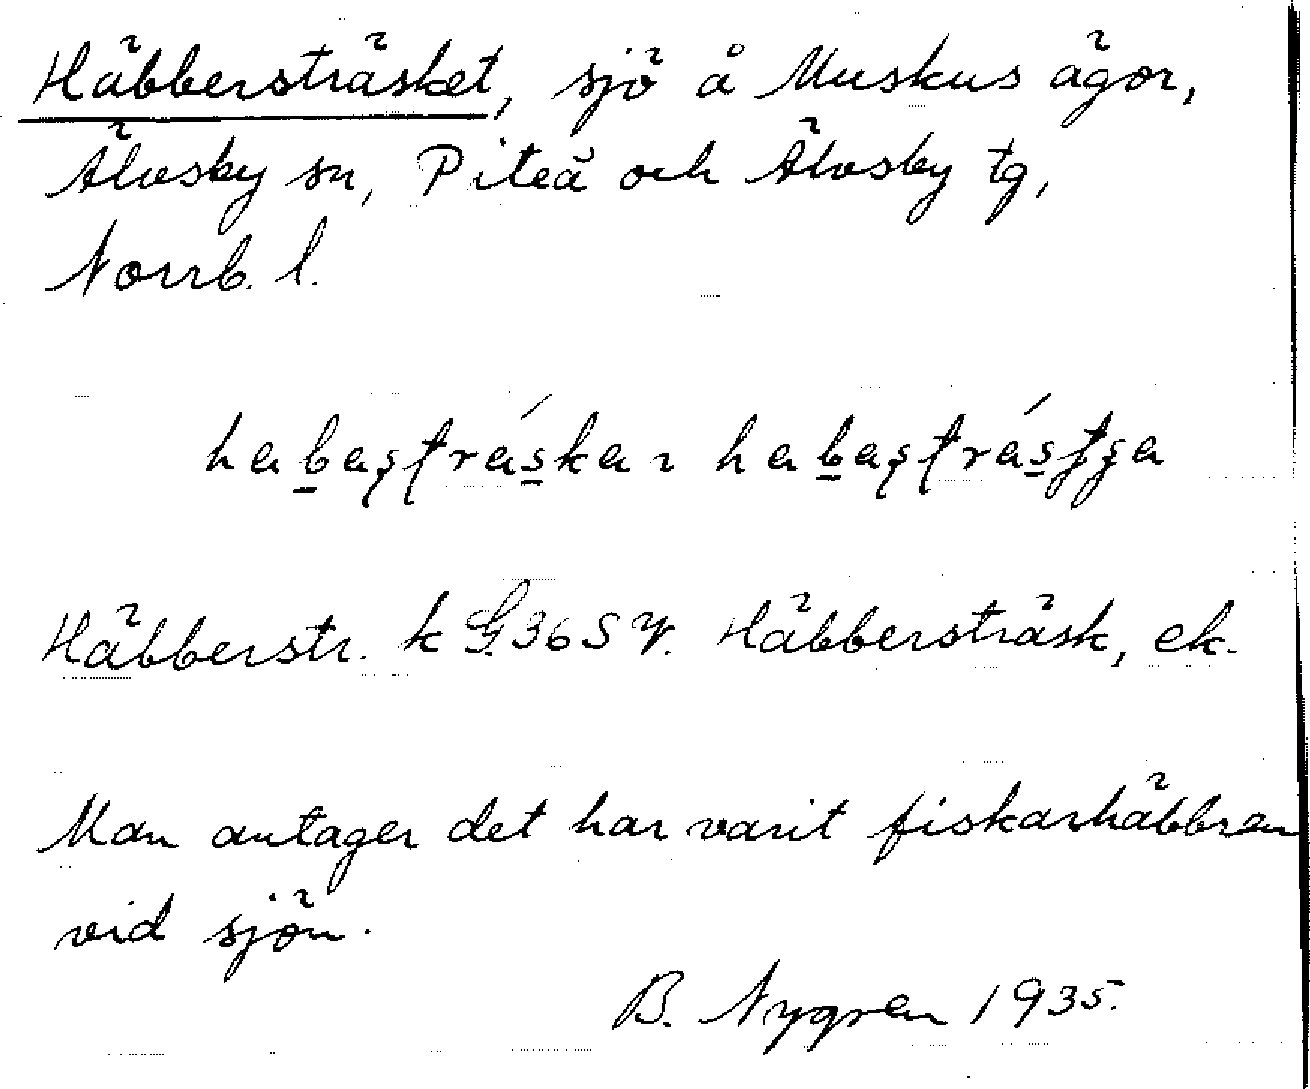 Häbbersträsket, sjö å Muskus ägor,
Älvsby sn, Piteå och Älvsby tg,
Norrb. l.
habaʂtráskaɿ habaʂtrástʂa
Häbberstr. k G. 36 S V. Häbbersträsk, ek.
Man antager det har varit fiskarhäbbren
vid sjön.
B. Nygren 1935.